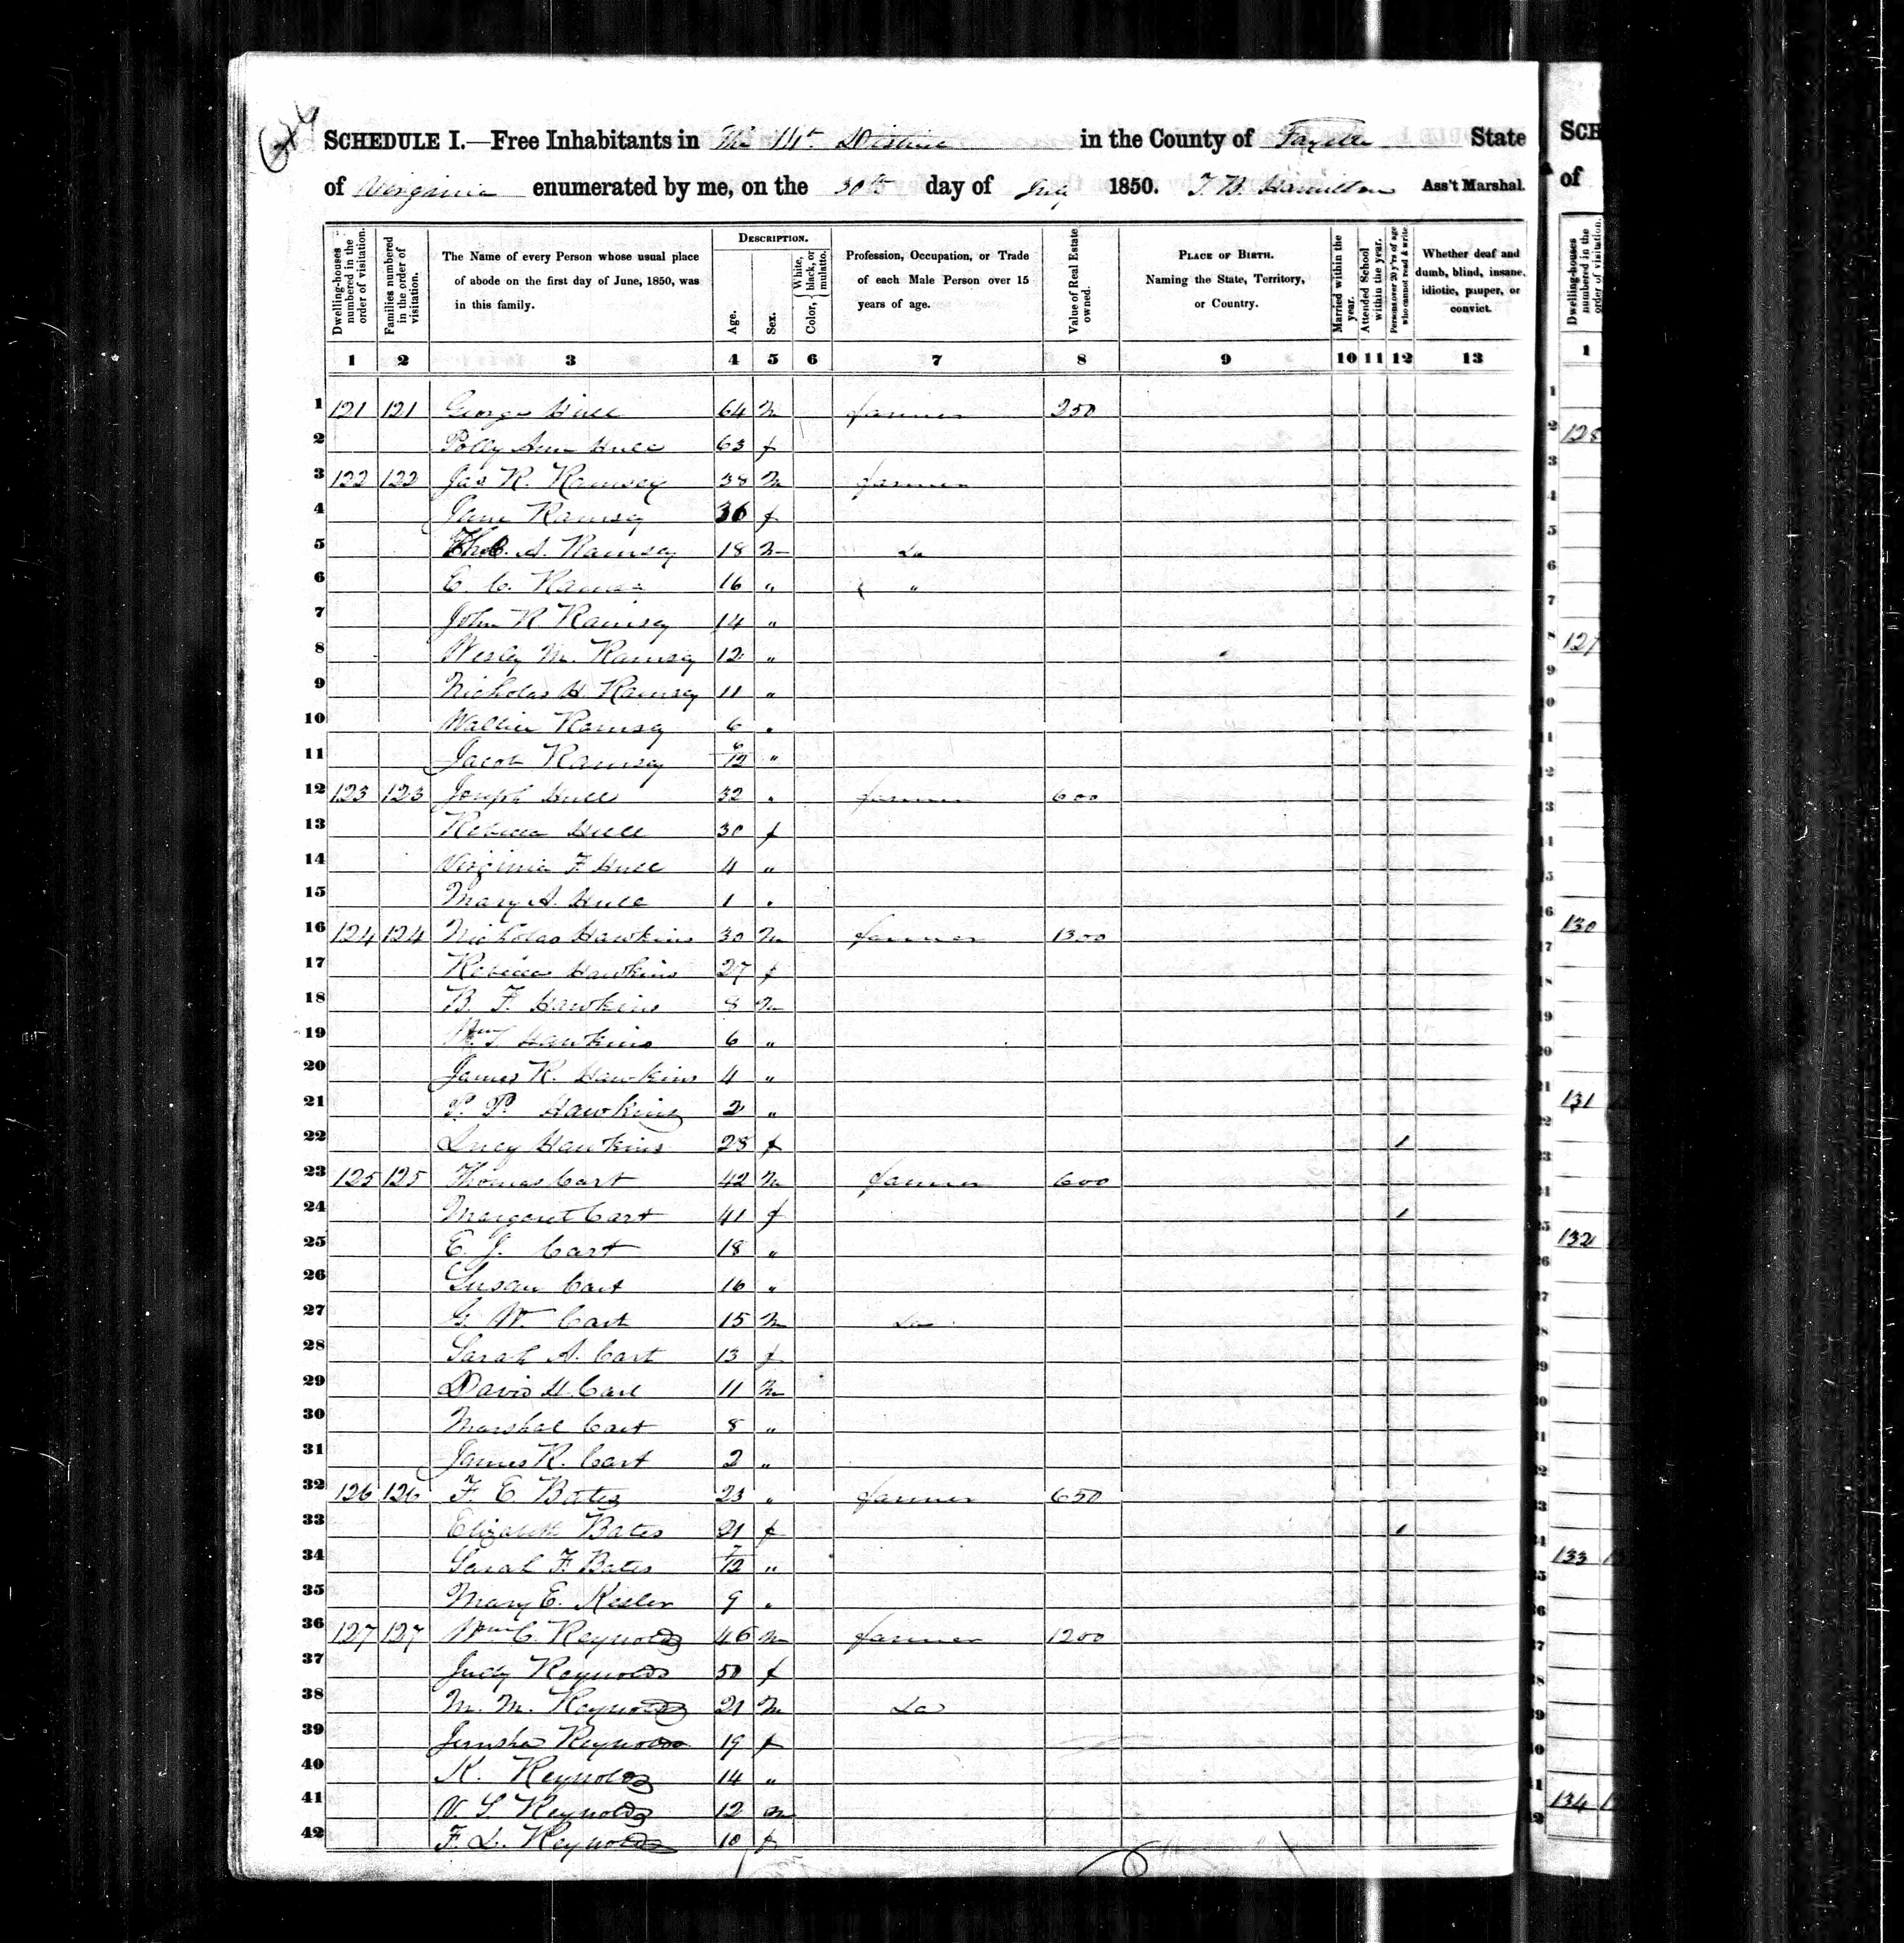 SCHEDULE I.—Free Inhabitants in The 14th District in the County of Fayette State
of Virginia enumerated by me, on the 30th day of July 1850. Hamilton Ass't Marshal.
Dwelling-houses numbered in the order of visitation.
Families numbered in the order of visitation.
The Name of every Person whose usual place of abode on the first day of June, 1850, was in this family.
DESCRIPTION.
Age.
Sex.
Color, White, black, or mulatto.
Profession, Occupation, or Trade of each Male Person over 15 years of age.
Value of Real Estate owned.
PLACE OF BIRTH. Naming the State, Territory, or Country.
Married within the year.
Attended School within the year.
Persons over 20 y'rs of age who cannot read & write.
Whether deaf and dumb, blind, insane, idiotic, pauper, or convict.
1 2 3 4 5 6 7 8 9 10 11 12 13
1 121 121 George Hull 64 m farmer 250
2 Polly Ann Hull 63 f
3 122 122 Jas R. Ramsey 38 m farmer
4 Jane Ramsey 36 f
5 A. Ramsey 18 m Do
6 C. C. 16 " "
7 John R. Ramsey 14 "
8 Wesly M. Ramsey 12 "
9 Nicholas H. Ramsey 11 "
10 Ramsey 6 "
11 Jacob Ramsey 6/12 "
12 123 123 Joseph Hull 32 " farmer 600
13 Rebecca Hull 30 f
14 Virginia F. Hull 4 "
15 Mary A. Hull 1 "
16 124 124 Nicholas Hawkins 30 m farmer 1300
17 Rebecca Hawkins 27 f
18 B. F. Hawkins 8 m
19 Hawkins 6 "
20 James R. Hawkins 4 "
21 P. P. Hawkins 2 "
22 Lucy Hawkins 28 f 1
23 125 125 Thomas Cart 42 m farmer 600
24 Margaret Cart 41 f 1
25 E. J. Cart 18 "
26 Susan Cart 16 "
27 G. W. Cart 15 m Do
28 Sarah A. Cart 13 f
29 David H. Cart 11 m
30 Marshal Cart 8 "
31 James R. Cart 2 "
32 126 126 F. E. Bates 23 " farmer 650
33 Elizabeth Bates 21 f 1
34 Sarah F. Bates 7/12 "
35 Mary E. Kesler 9 "
36 127 127 Wm C. Reynolds 46 m farmer 1200
37 Judy Reynolds 50 f
38 M. M. Reynolds 21 m Do
39 Jerusha Reynolds 19 f
40 K. Reynolds 14 "
41 V. S. Reynolds 12 m
42 F. L. Reynolds 10 f
SCH
of
Dwelling-houses numbered in the order of visitation.
1
128
130
131
132
133
134